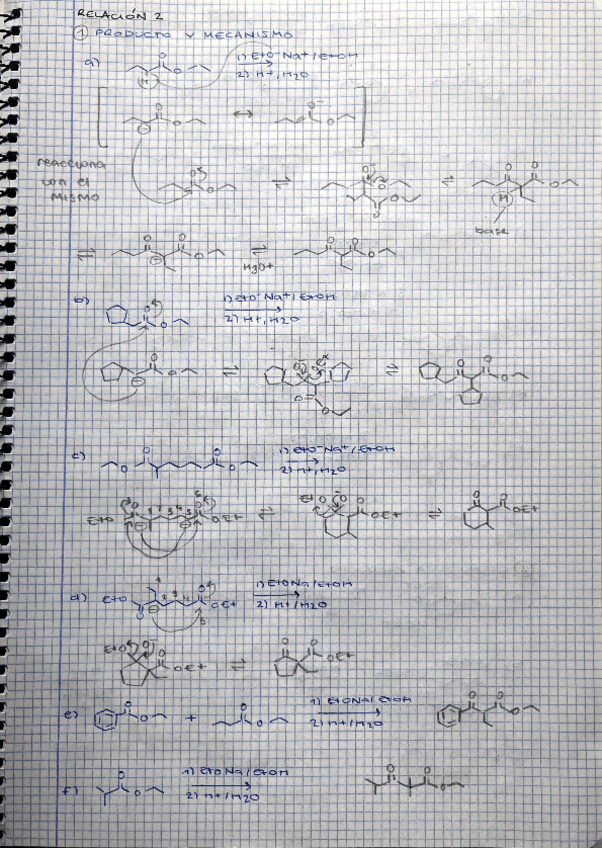 RELACIÓN 2
① PRODUCTO Y MECANISMO
a) O O 1) EtO⁻Na⁺/EtOH
H 2) H+, H2O
reacciona
con el
MISMO
H
base
H3O+
b) 1) EtO⁻Na⁺/EtOH
2) H+, H2O
c) 1) EtO⁻Na⁺/EtOH
2) H+, H2O
EtO 1 2 3 4 5 6 OEt EtO OEt OEt
d) EtO 1 2 3 4 5 OEt 1) EtONa/EtOH
2) H+/H2O
EtO OEt OEt
e) + 1) EtONa/EtOH
2) H+/H2O
f) 1) EtONa/EtOH
2) H+/H2O